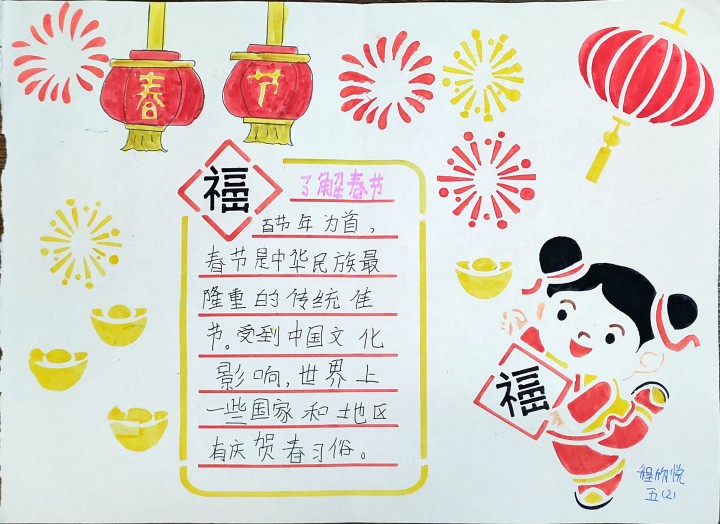 春节
福
了解春节
百节年为首，
春节是中华民族最
隆重的传统佳
节。受到中国文化
影响，世界上
一些国家和地区
有庆贺春习俗。
福
程欣悦
五(2)